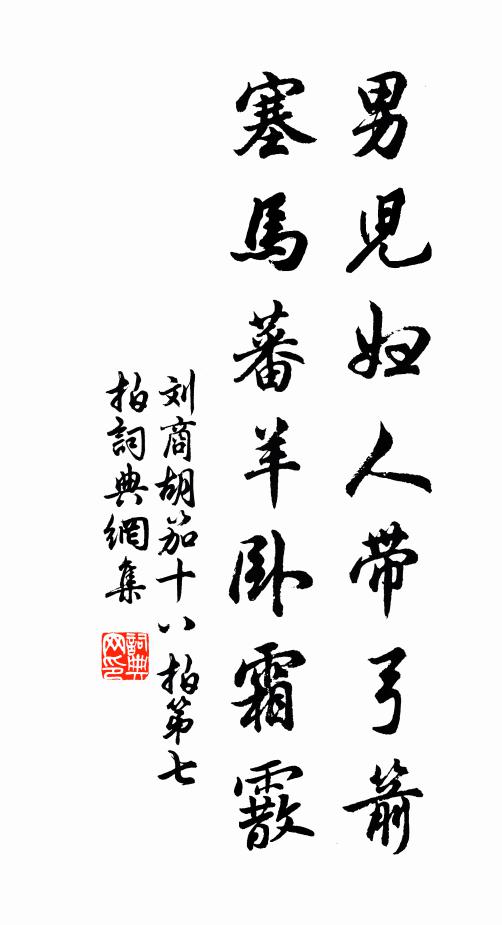 男兒妇人带弓箭
塞馬蕃羊卧霜霰
刘商胡笳十八拍第七
拍詞典網集
詞典网印